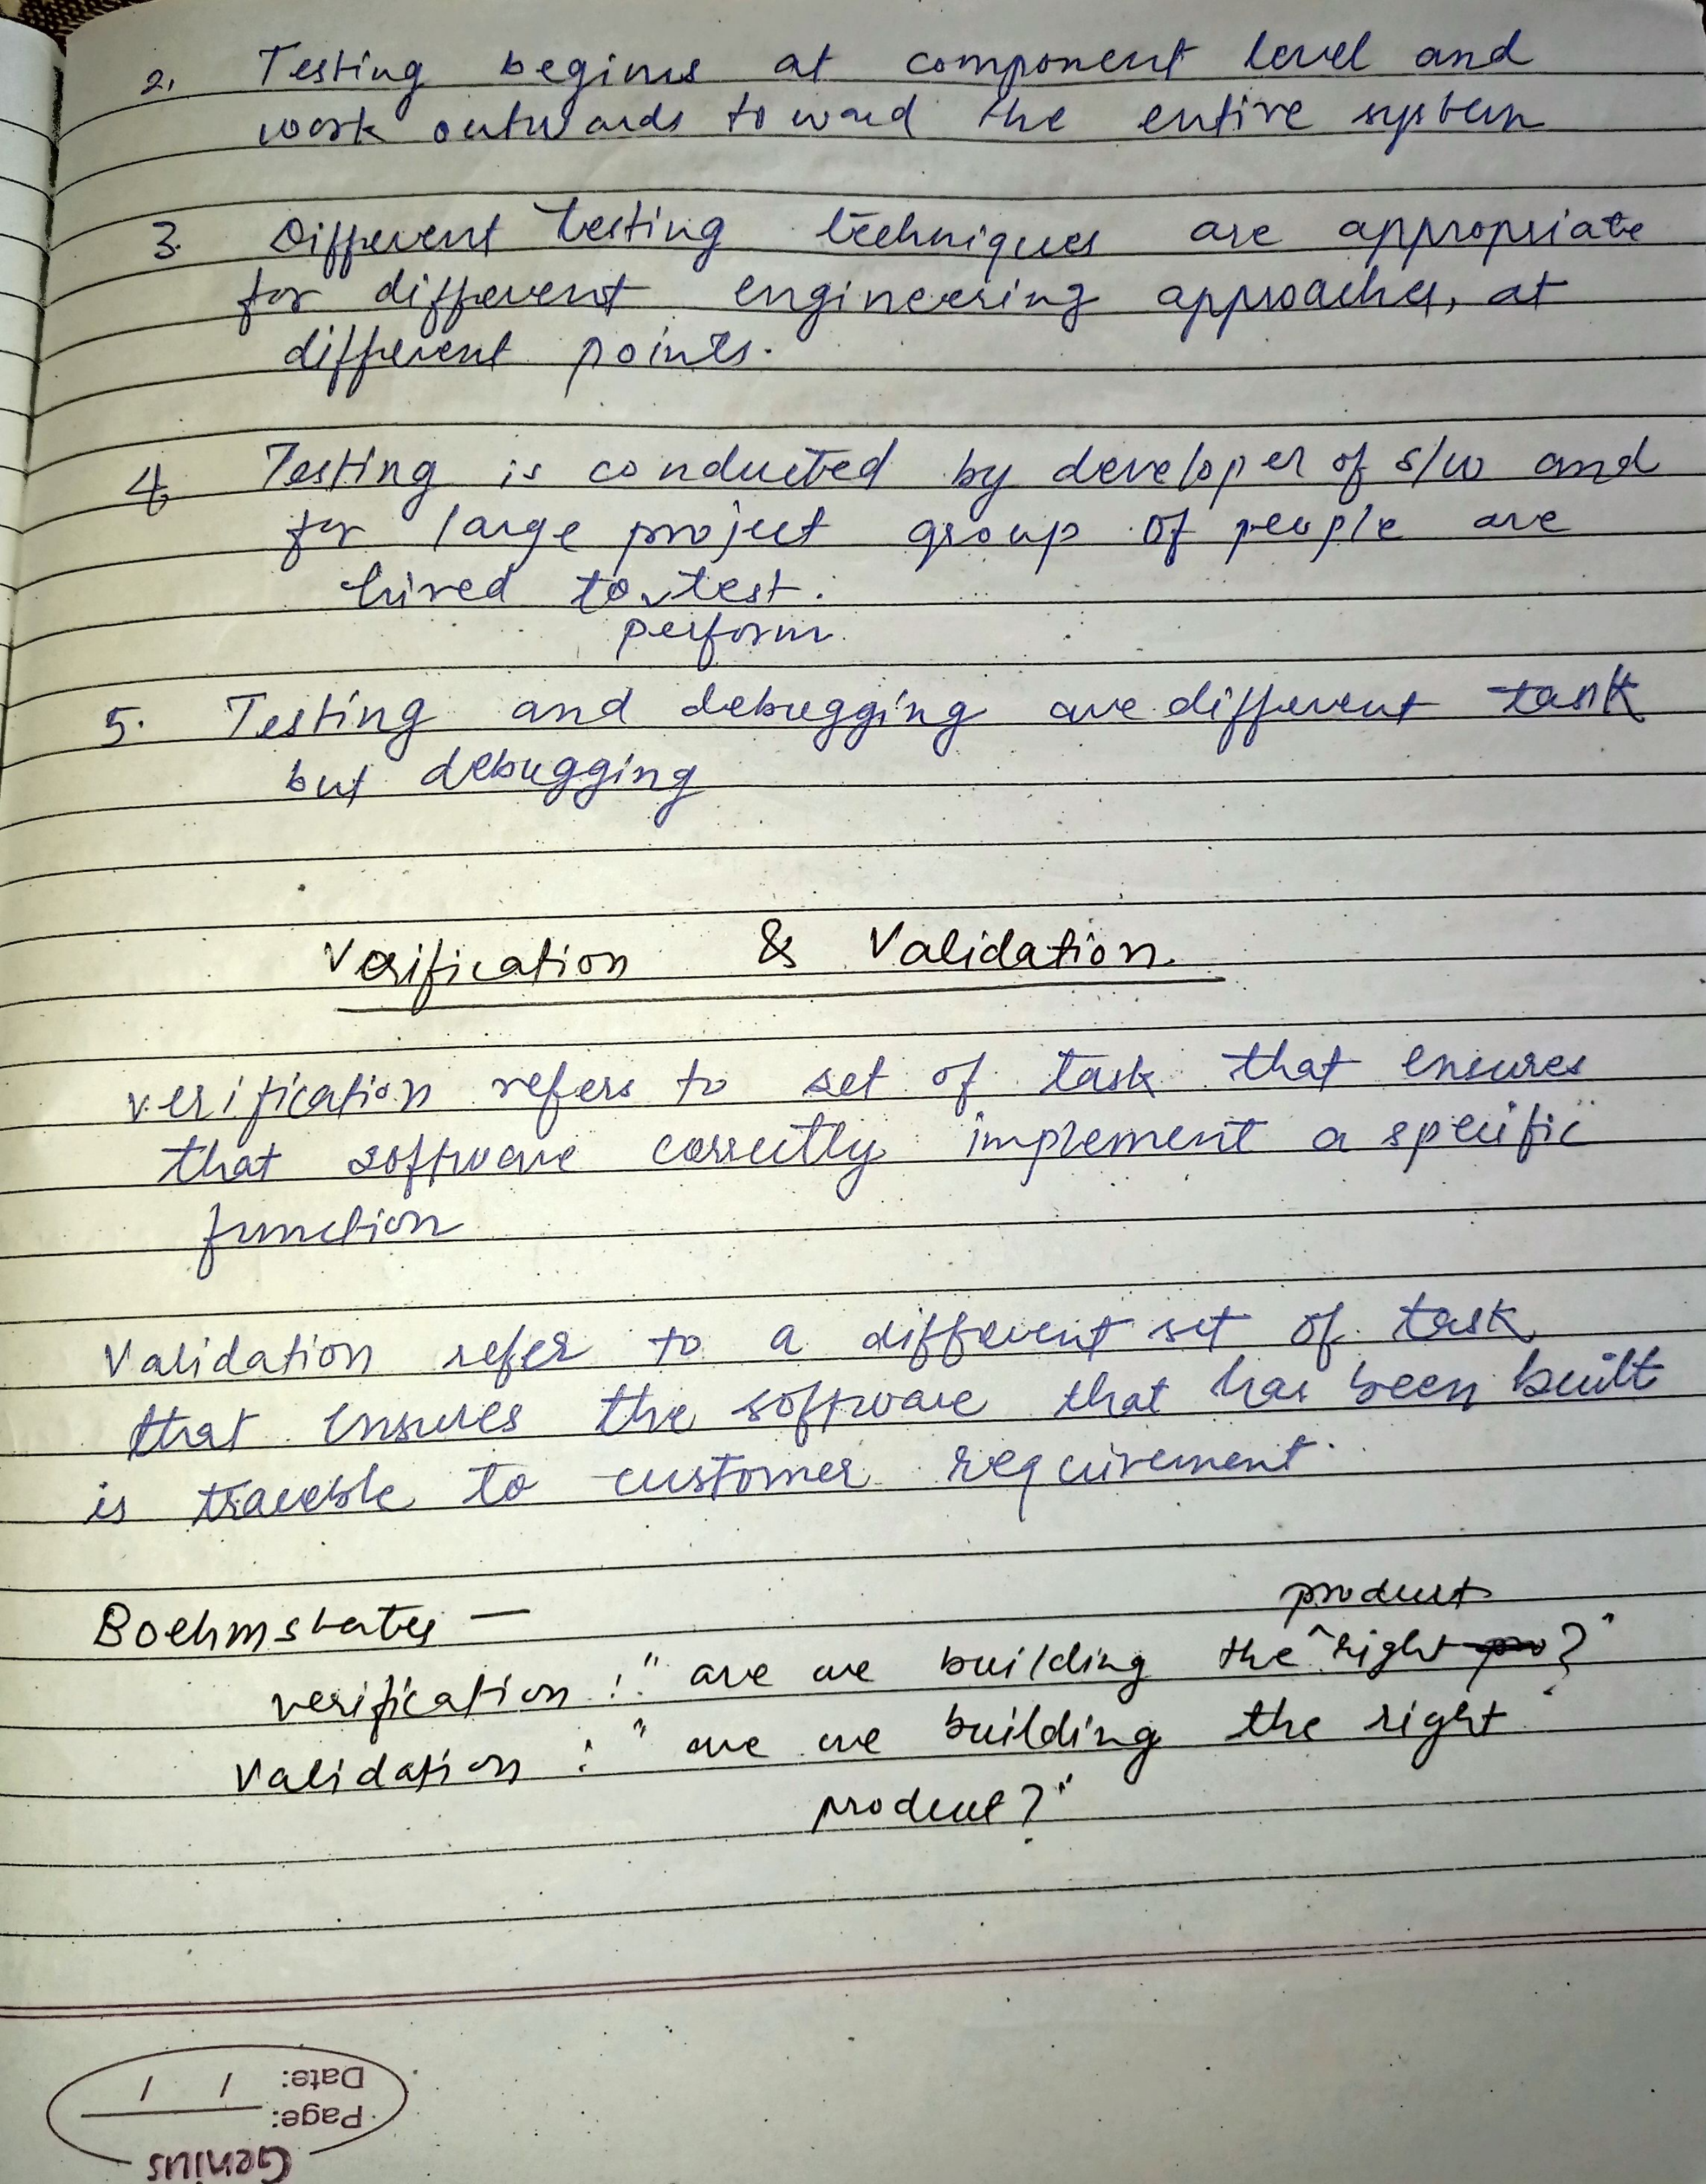 2. Testing begins at component level and
work outwards toward the entire system
3. Different testing techniques are appropriate
for different engineering approaches, at
different points.
4. Testing is conducted by developer of s/w and
for large project group of people are
hired to test.
perform
5. Testing and debugging are different task
but debugging
Verification & Validation
verification refers to set of task that ensures
that software correctly implement a specific
function
Validation refer to a different set of task
that ensures the software that has been built
is traceble to customer requirement.
Boehm states —
product
verification : "are we building the right ?"
Validation : "are we building the right
product?"
Date: / /
Page:
Genius